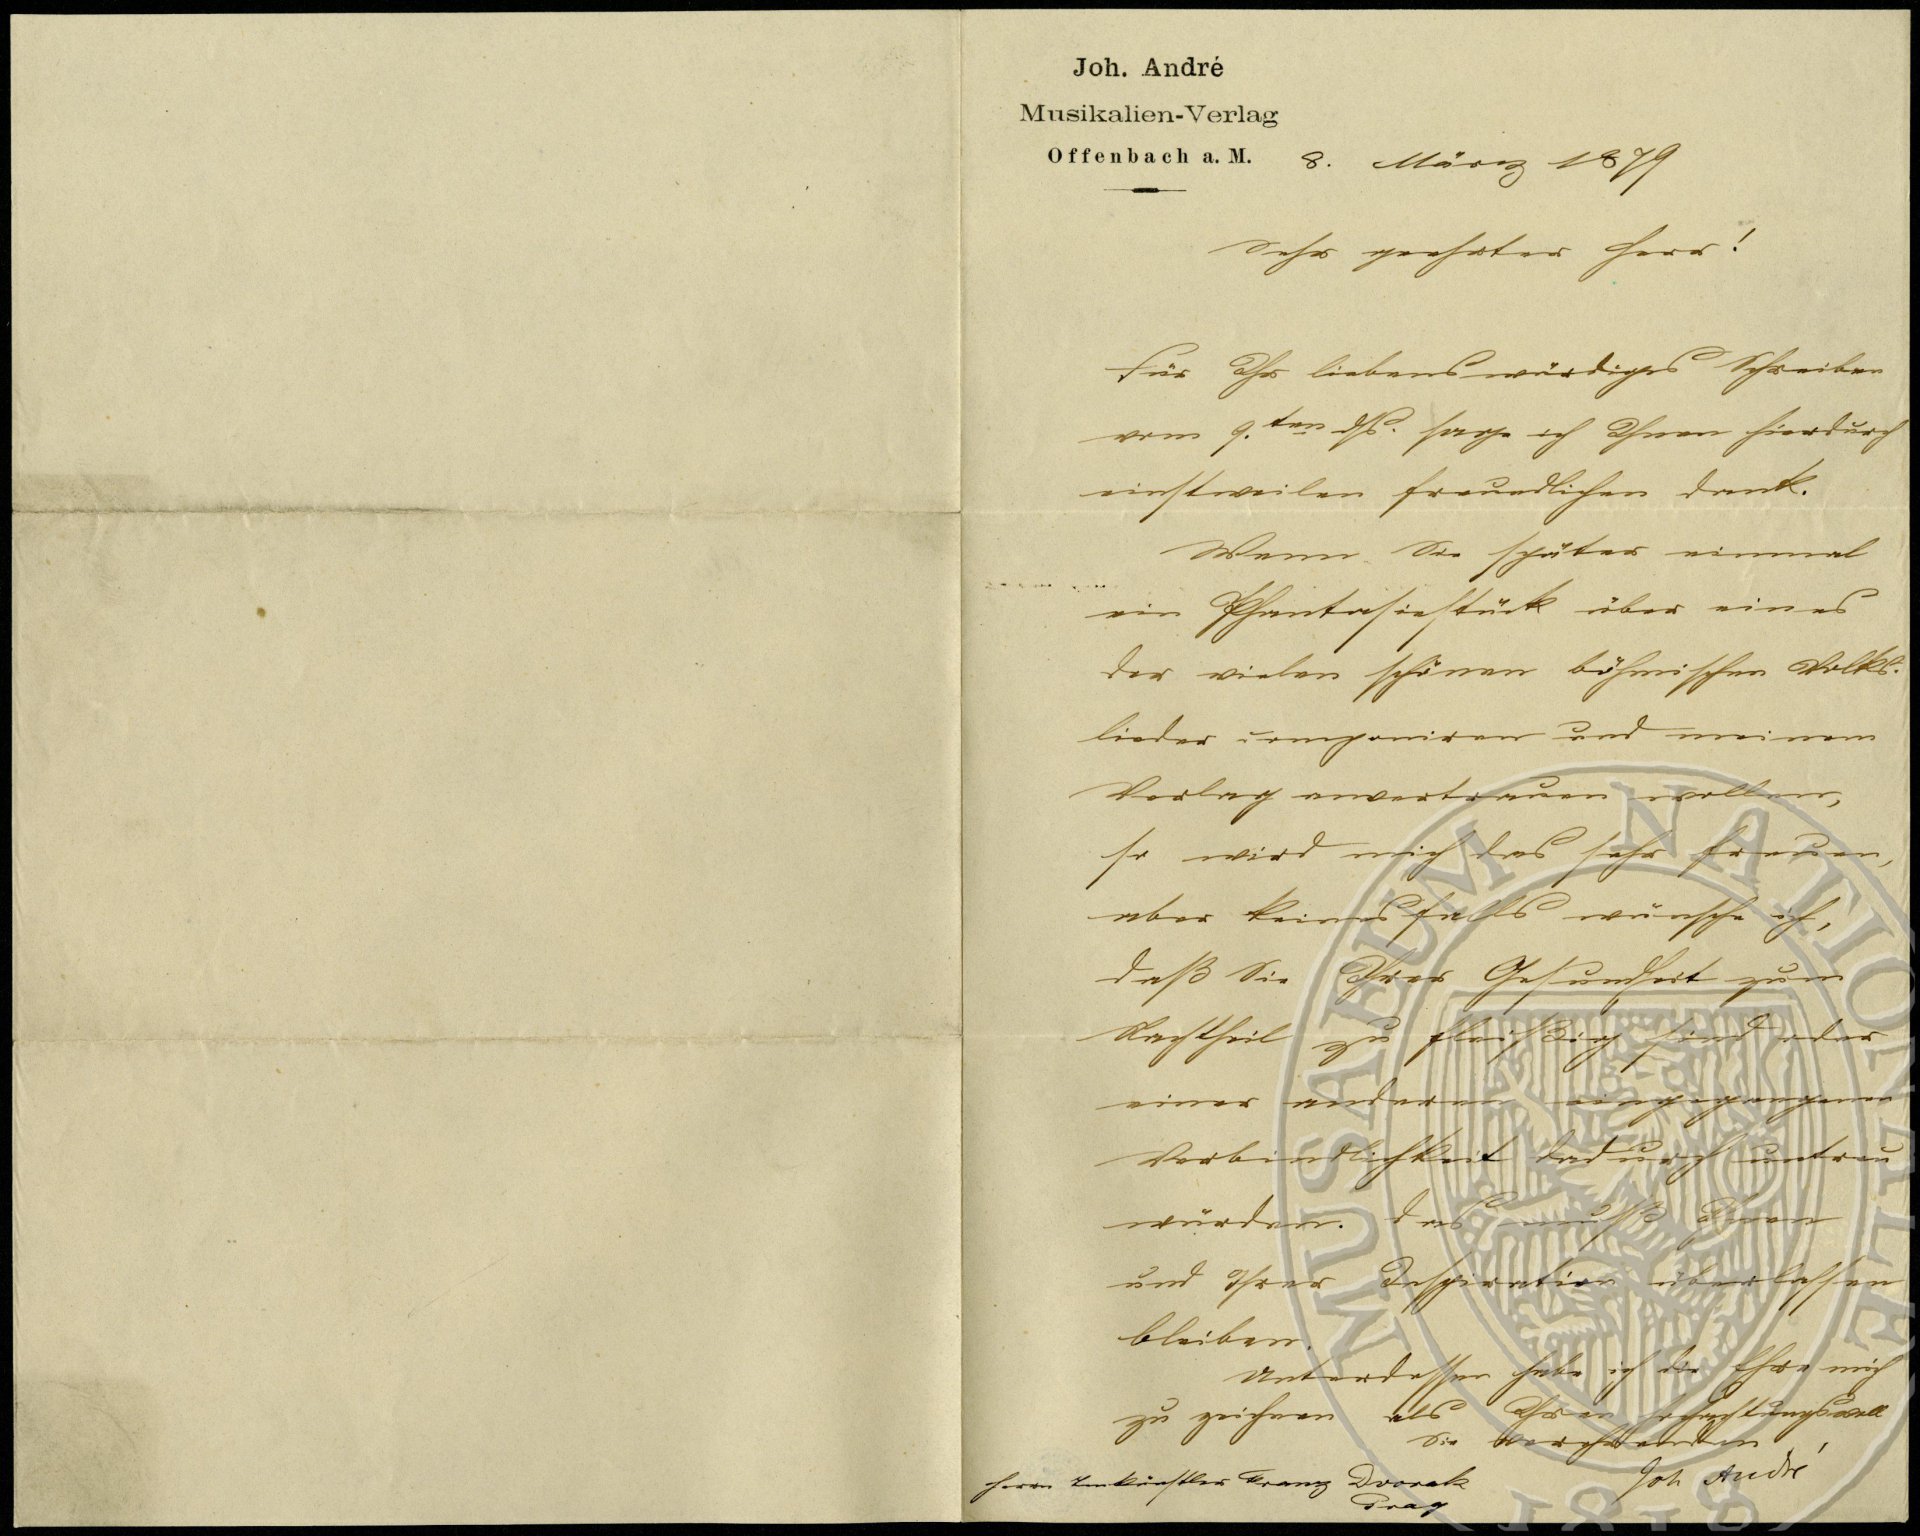 Joh. André
Musikalien-Verlag
Offenbach a. M. 8. März 1879
Sehr geehrter Herr!
Für Ihr liebenswürdiges Schreiben
vom 9.ten ds. sage ich Ihnen hierdurch
einstweilen freundlichen Dank.
Wenn Sie später einmal
ein Phantasiestück über eines
der vielen schönen böhmischen Volks-
lieder componiren und meinem
Verlag anvertrauen wollen,
so wird mich das sehr freuen,
aber keinesfalls wünsche ich,
daß Sie Ihrer Gesundheit zum
Nachtheil zu fleißig sind oder
einer anderen eingegangenen
Verbindlichkeit dadurch untreu
würden. Das muß Ihnen
und Ihrer Inspiration überlassen
bleiben.
Unterdessen habe ich die Ehre mich
zu zeichnen als Ihren hochachtungsvoll
Sie verehrenden
Joh André
Herrn Tonkünstler Franz Dvorak
Prag
MUSAEUM NATIONALE
1818